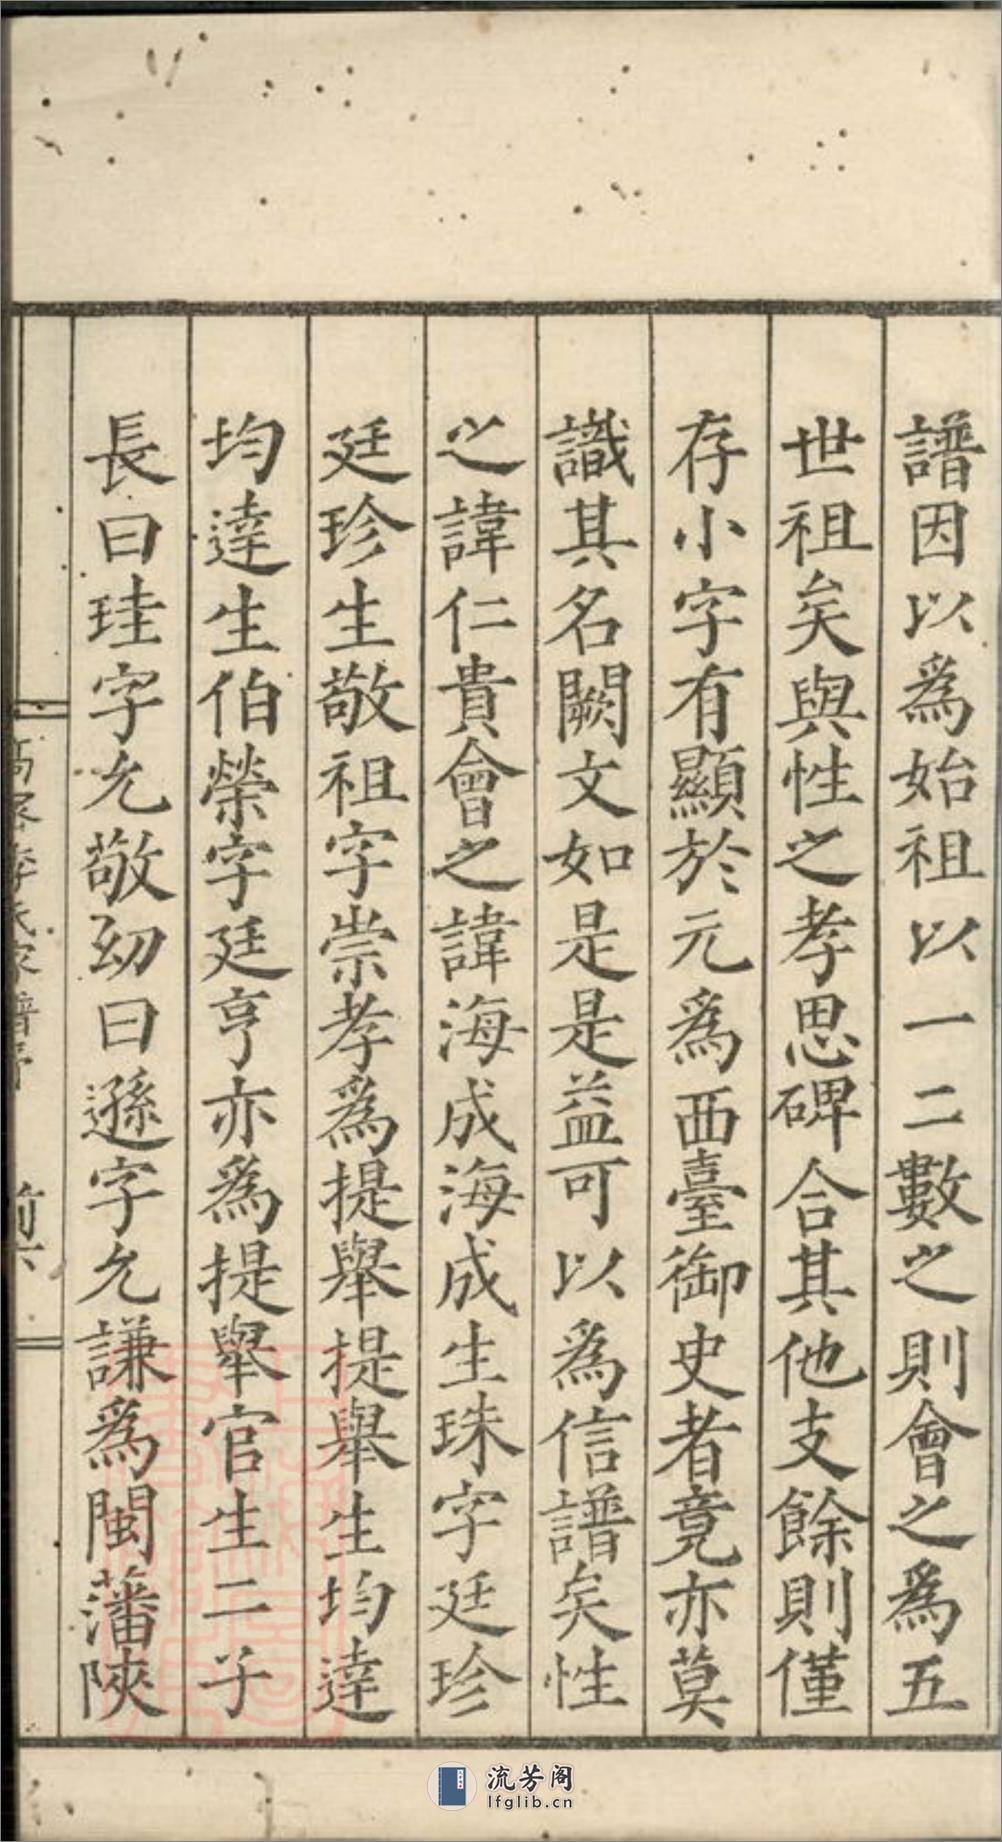 譜因以爲始祖以一二數之則會之爲五
世祖矣與性之孝思碑合其他支餘則僅
存小字有顯於元爲西臺御史者竟亦莫
識其名闕文如是是益可以爲信譜矣性
之諱仁貴會之諱海成海成生珠字廷珍
廷珍生敬祖字崇孝爲提舉提舉生均達
均達生伯榮字廷亨亦爲提舉官生二子
長曰珪字允敬幼曰遜字允謙爲閩藩陝
李氏家譜序
前六
流芳阁
lfglib.cn